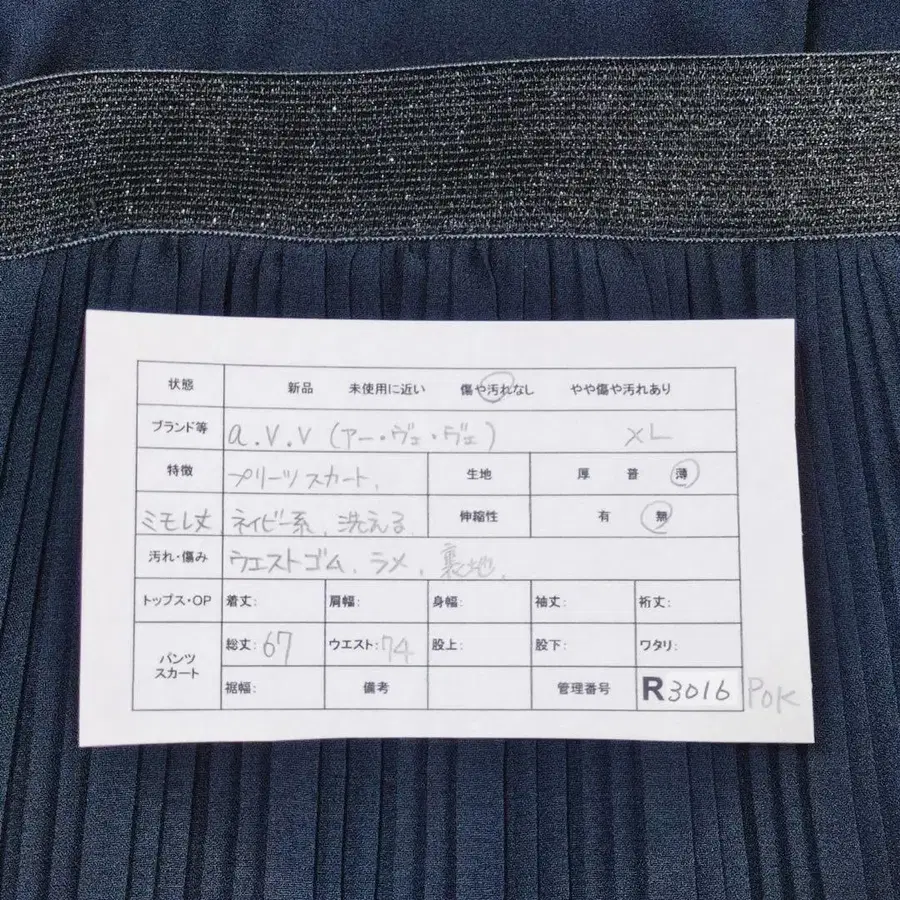 状態 新品 未使用に近い 傷や汚れなし やや傷や汚れあり
ブランド等 a.v.v (アー・ヴェ・ヴェ) XL
特徴 プリーツスカート、 生地 厚 普 薄
ミモレ丈 ネイビー系、洗える 伸縮性 有 無
汚れ・傷み ウエストゴム、ラメ、裏地、
トップス・OP 着丈: 肩幅: 身幅: 袖丈: 裄丈:
パンツ スカート 総丈: 67 ウエスト: 74 股上: 股下: ワタリ:
裾幅: 備考 管理番号 R3016 POK